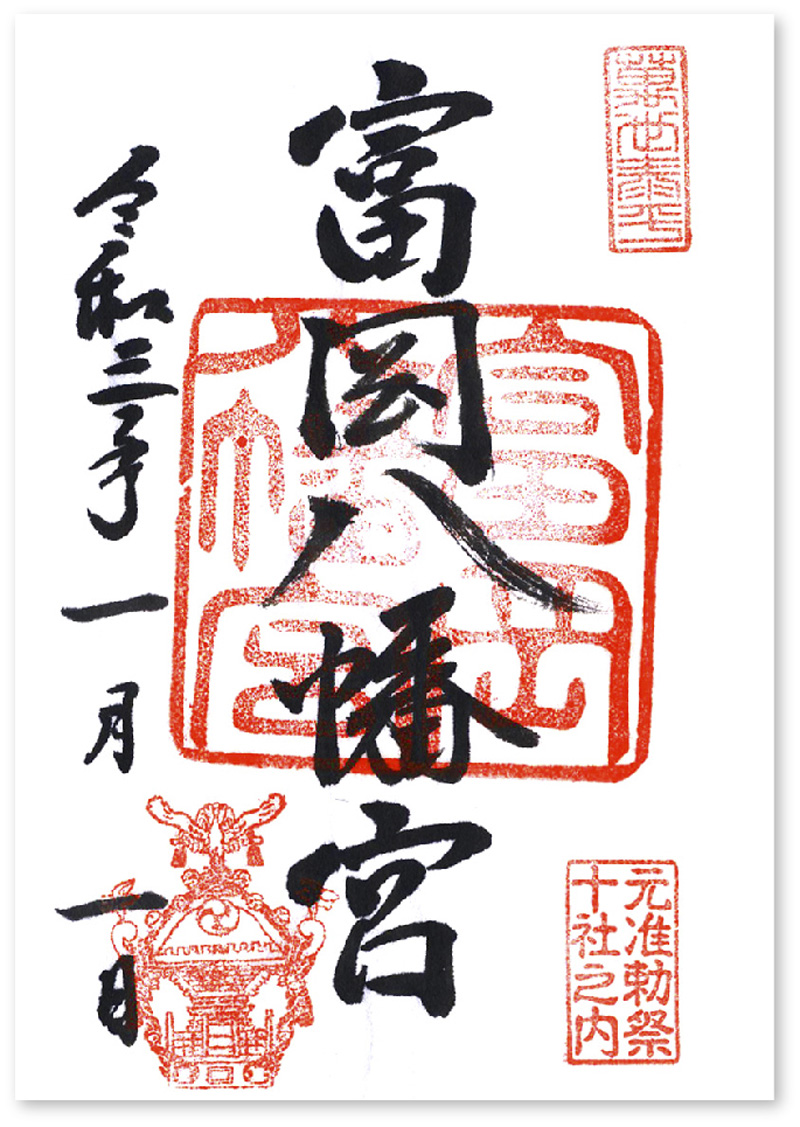 萬世泰平
元准勅祭
十社之内
富岡八幡宮
富岡
八幡宮
令和三年一月一日